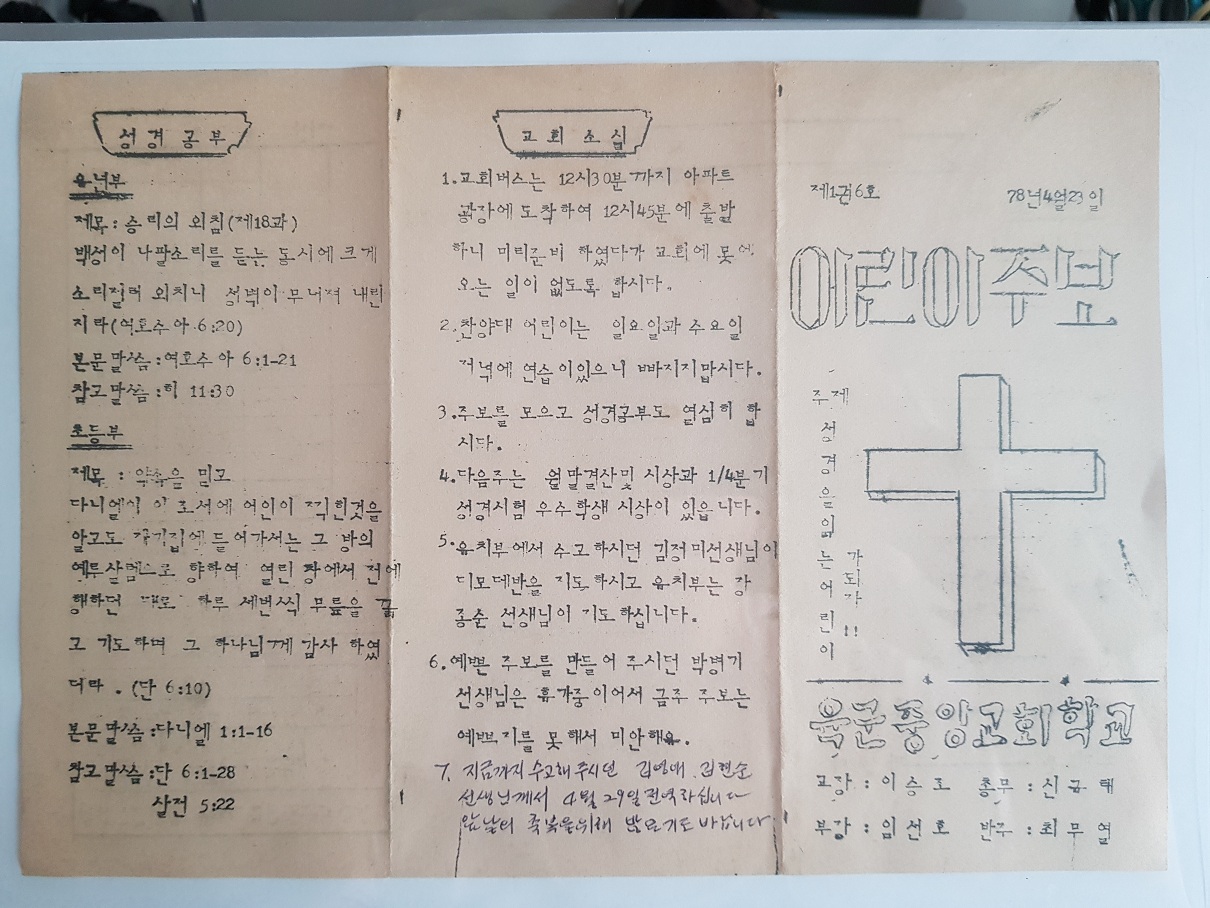 성경공부
유년부
제목: 승리의 외침(제18과)
백성이 나팔소리를 듣는 동시에 크게
소리질러 외치니 성벽이 무너져 내린
지라(여호수아 6:20)
본문말씀:여호수아 6:1-21
참고말씀:히 11:30
초등부
제목 : 약속을 믿고
다니엘이 이 조서에 어인이 찍힌것을
알고도 자기집에 들어가서는 그 방의
예루살렘으로 향하여 열린 창에서 전에
행하던 대로 하루 세번씩 무릎을 꿇
고 기도하며 그 하나님께 감사 하였
더라 . (단 6:10)
본문말씀:다니엘 1:1-16
참고말씀:단 6:1-28
살전 5:22
교회소식
1.교회버스는 12시30분까지 아파트
광장에 도착하여 12시45분에 출발
하니 미리준비 하였다가 교회에 못
오는 일이 없도록 합시다.
2.찬양대 어린이는 일요일과 수요일
저녁에 연습이있으니 빠지지맙시다.
3.주보를 모으고 성경공부도 열심히 합
시다.
4.다음주는 월말결산및 시상과 1/4분기
성경시험 우수학생 시상이 있읍니다.
5.유치부에서 수고하시던 김정미선생님이
디모데반을 지도하시고 유치부는 강
종순 선생님이 지도하십니다.
6.예쁜 주보를 만들어 주시던 박병기
선생님은 휴가중이어서 금주 주보는
예쁘지를 못해서 미안해요.
7. 지금까지 수고해 주시던 김영애. 김현순
선생님께서 4월 29일 전역하십니다
앞날의 축복을위해 많은기도 바랍니다
제1권6호 78년4월23일
어린이주보
주제
성경을외는어린이
가되자!!
육군중앙교회학교
교장 : 이승로 총무 : 신규태
부장 : 임선호 반주 : 최무열